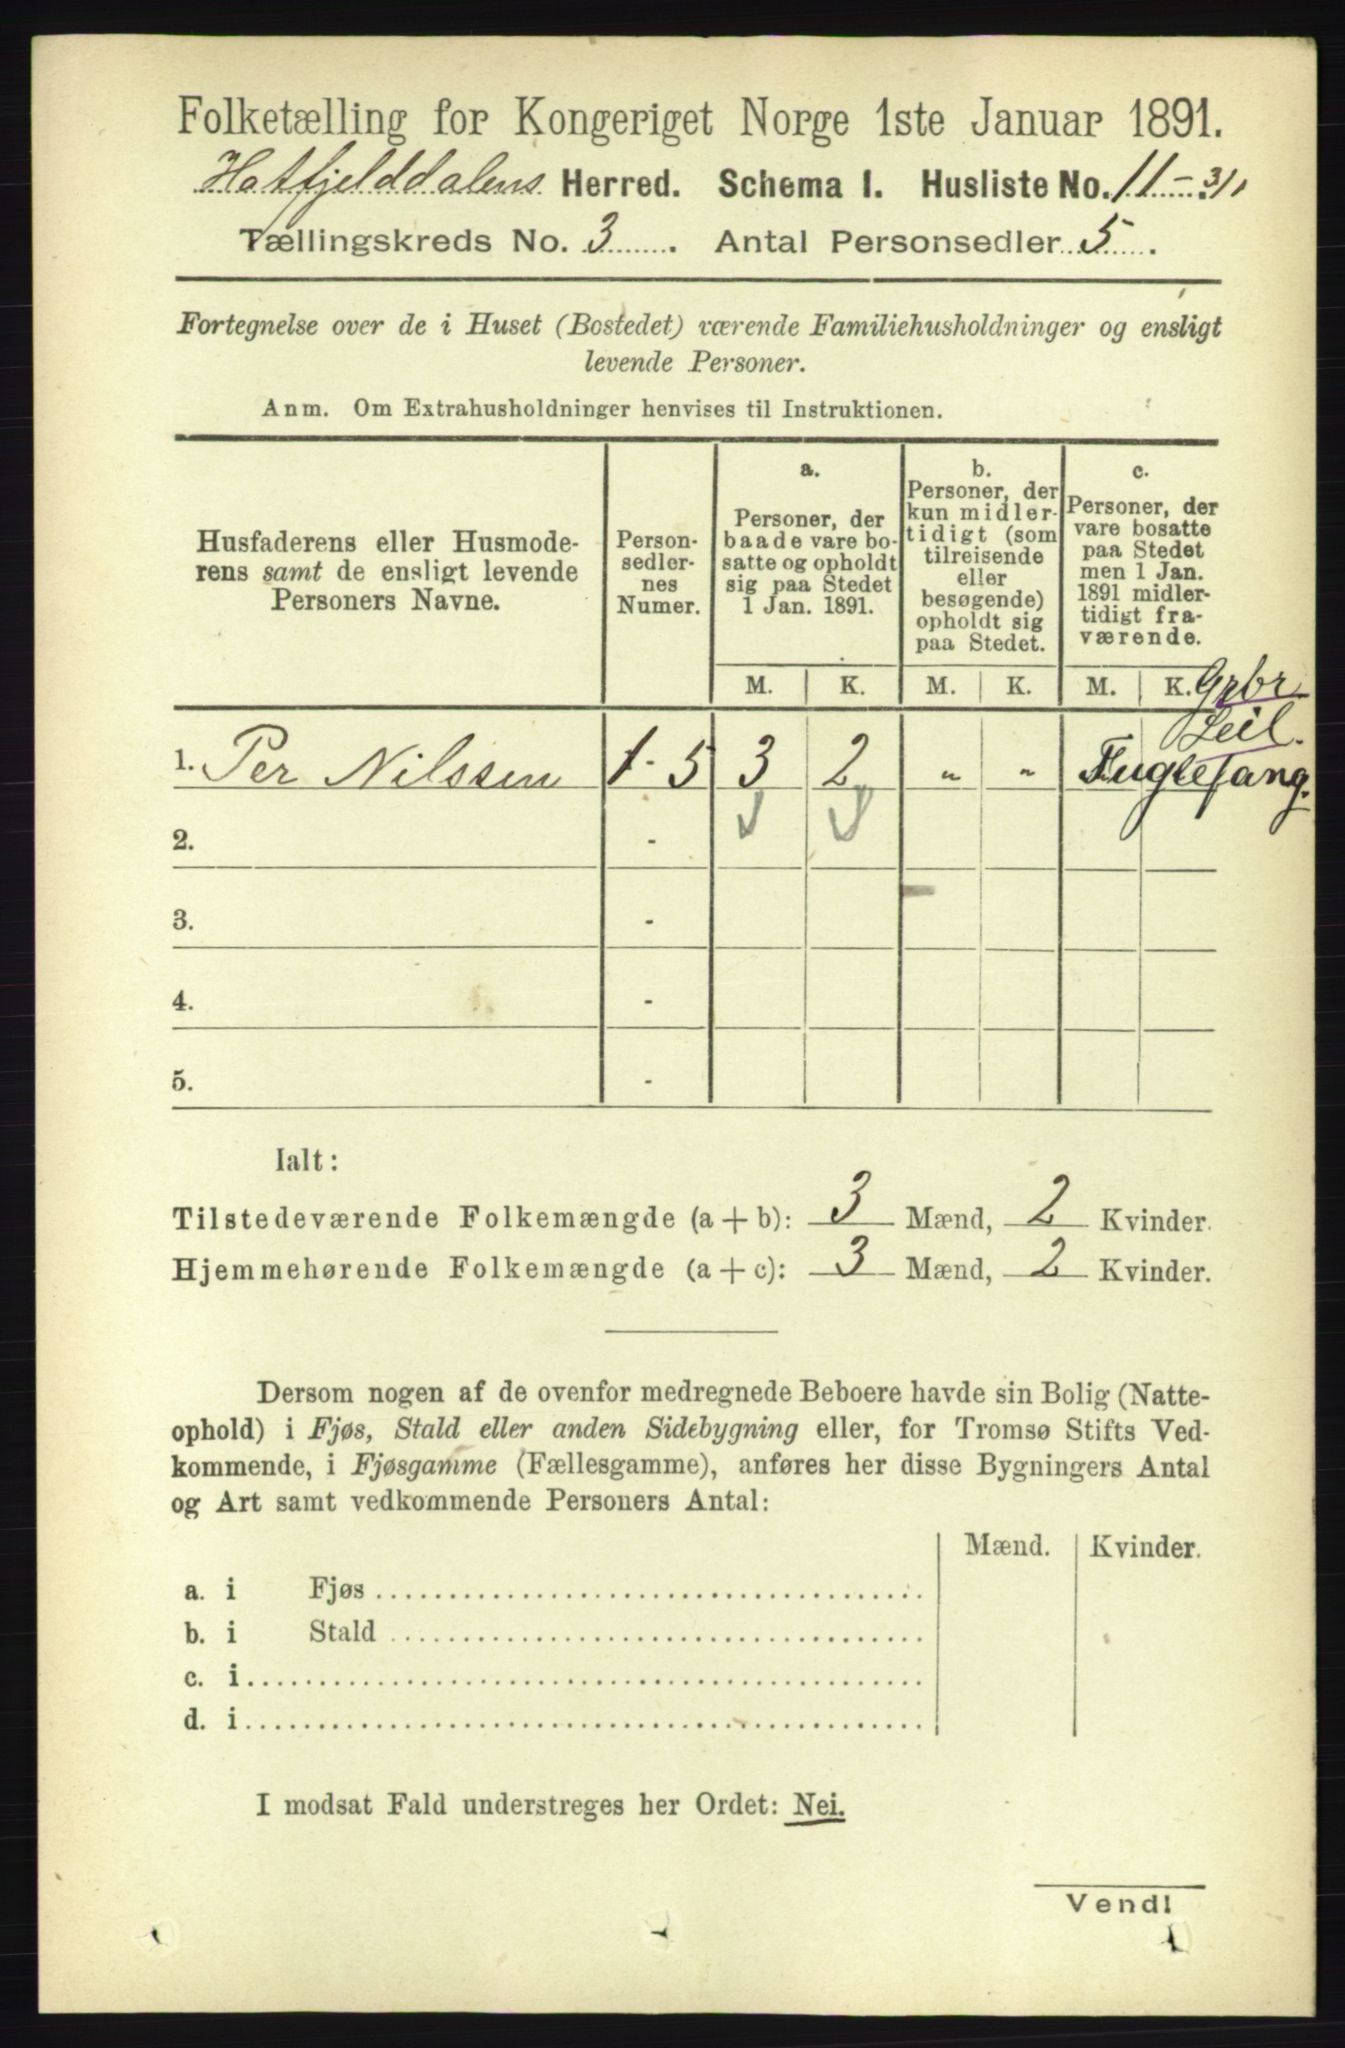 Folketælling for Kongeriget Norge 1ste Januar 1891.
Hatfjelddalens Herred. Schema I. Husliste No. 11 - 31
Tællingskreds No. 3. Antal Personsedler 5.
Fortegnelse over de i Huset (Bostedet) værende Familiehusholdninger og ensligt
levende Personer.
Anm. Om Extrahusholdninger henvises til Instruktionen.
Husfaderens eller Husmode-
rens samt de ensligt levende
Personers Navne.
Person-
sedler-
nes
Numer.
a.
Personer, der
baade vare bo-
satte og opholdt
sig paa Stedet
1 Jan. 1891.
b.
Personer, der
kun midler-
tidigt (som
tilreisende
eller
besøgende)
opholdt sig
paa Stedet.
c.
Personer, der
vare bosatte
paa Stedet
men 1 Jan.
1891 midler-
tidigt fra-
værende.
M. K. M. K. M. K.
Grbr
Leil.
1. Per Nilssen 1 - 5 3 2 " " Fuglefang.
2. -
3. -
4. -
5. -
Ialt:
Tilstedeværende Folkemængde (a + b): 3 Mænd, 2 Kvinder.
Hjemmehørende Folkemængde (a + c): 3 Mænd, 2 Kvinder.
Dersom nogen af de ovenfor medregnede Beboere havde sin Bolig (Natte-
ophold) i Fjøs, Stald eller anden Sidebygning eller, for Tromsø Stifts Ved-
kommende, i Fjøsgamme (Fællesgamme), anføres her disse Bygningers Antal
og Art samt vedkommende Personers Antal:
Mænd. Kvinder.
a. i Fjøs
b. i Stald
c. i
d. i
I modsat Fald understreges her Ordet: Nei.
Vend!